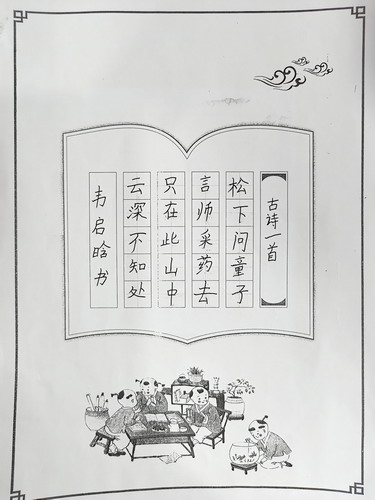 古诗一首
松下问童子
言师采药去
只在此山中
云深不知处
韦启晗书